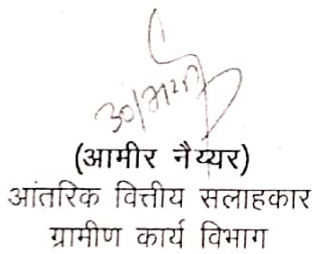 (आमीर नैय्यर)
आंतरिक वित्तीय सलाहकार
ग्रामीण कार्य विभाग